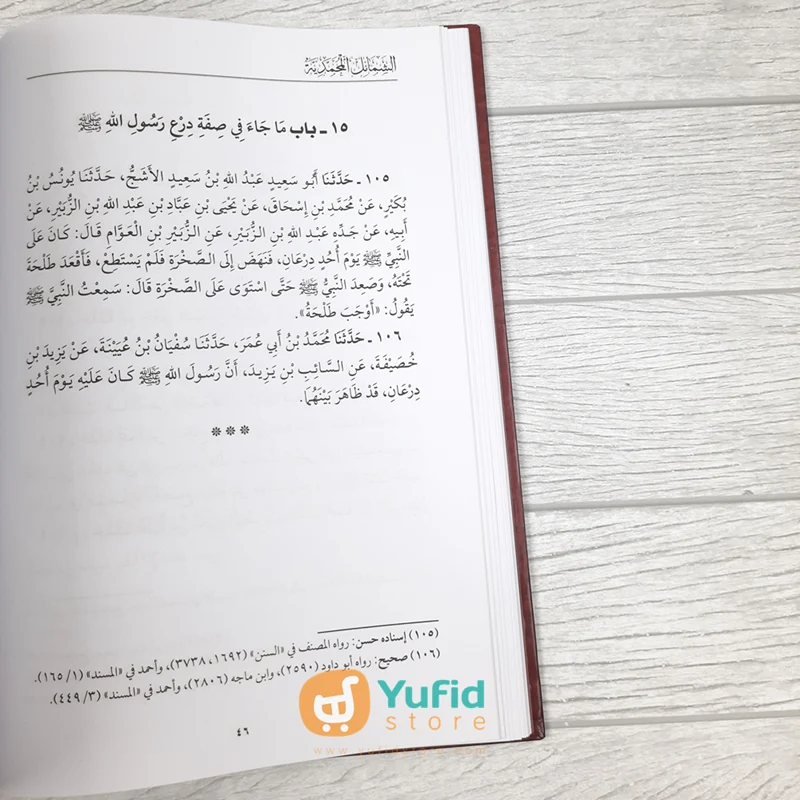 الشمائل المحمدية
١٥ ـ باب مَا جَاءَ فِي صِفَةِ دِرْعِ رَسُولِ اللهِ ﷺ
١٠٥ ـ حَدَّثَنَا أَبُو سَعِيدٍ عَبْدُ اللهِ بْنُ سَعِيدٍ الأَشَجُّ، حَدَّثَنَا يُونُسُ بْنُ
بُكَيْرٍ، عَنْ مُحَمَّدِ بْنِ إِسْحَاقَ، عَنْ يَحْيَى بْنِ عَبَّادِ بْنِ عَبْدِ اللهِ بْنِ الزُّبَيْرِ، عَنْ
أَبِيهِ، عَنْ جَدِّهِ عَبْدِ اللهِ بْنِ الزُّبَيْرِ، عَنِ الزُّبَيْرِ بْنِ الْعَوَّامِ قَالَ: كَانَ عَلَى
النَّبِيِّ ﷺ يَوْمَ أُحُدٍ دِرْعَانِ، فَنَهَضَ إِلَى الصَّخْرَةِ فَلَمْ يَسْتَطِعْ، فَأَقْعَدَ طَلْحَةَ
تَحْتَهُ، وَصَعِدَ النَّبِيُّ ﷺ حَتَّى اسْتَوَى عَلَى الصَّخْرَةِ قَالَ: سَمِعْتُ النَّبِيَّ ﷺ
يَقُولُ: «أَوْجَبَ طَلْحَةُ».
١٠٦ ـ حَدَّثَنَا مُحَمَّدُ بْنُ أَبِي عُمَرَ، حَدَّثَنَا سُفْيَانُ بْنُ عُيَيْنَةَ، عَنْ يَزِيدَ بْنِ
خُصَيْفَةَ، عَنِ السَّائِبِ بْنِ يَزِيدَ، أَنَّ رَسُولَ اللهِ ﷺ كَانَ عَلَيْهِ يَوْمَ أُحُدٍ
دِرْعَانِ، قَدْ ظَاهَرَ بَيْنَهُمَا.
***
(١٠٥) إسناده حسن: رواه المصنف في «السنن» (١٦٩٢، ٣٧٣٨)، وأحمد في «المسند» (١/ ١٦٥).
(١٠٦) صحيح: رواه أبو داود (٢٥٩٠)، وابن ماجه (٢٨٠٦)، وأحمد في «المسند» (٣/ ٤٤٩).
Yufid
store
٤٦